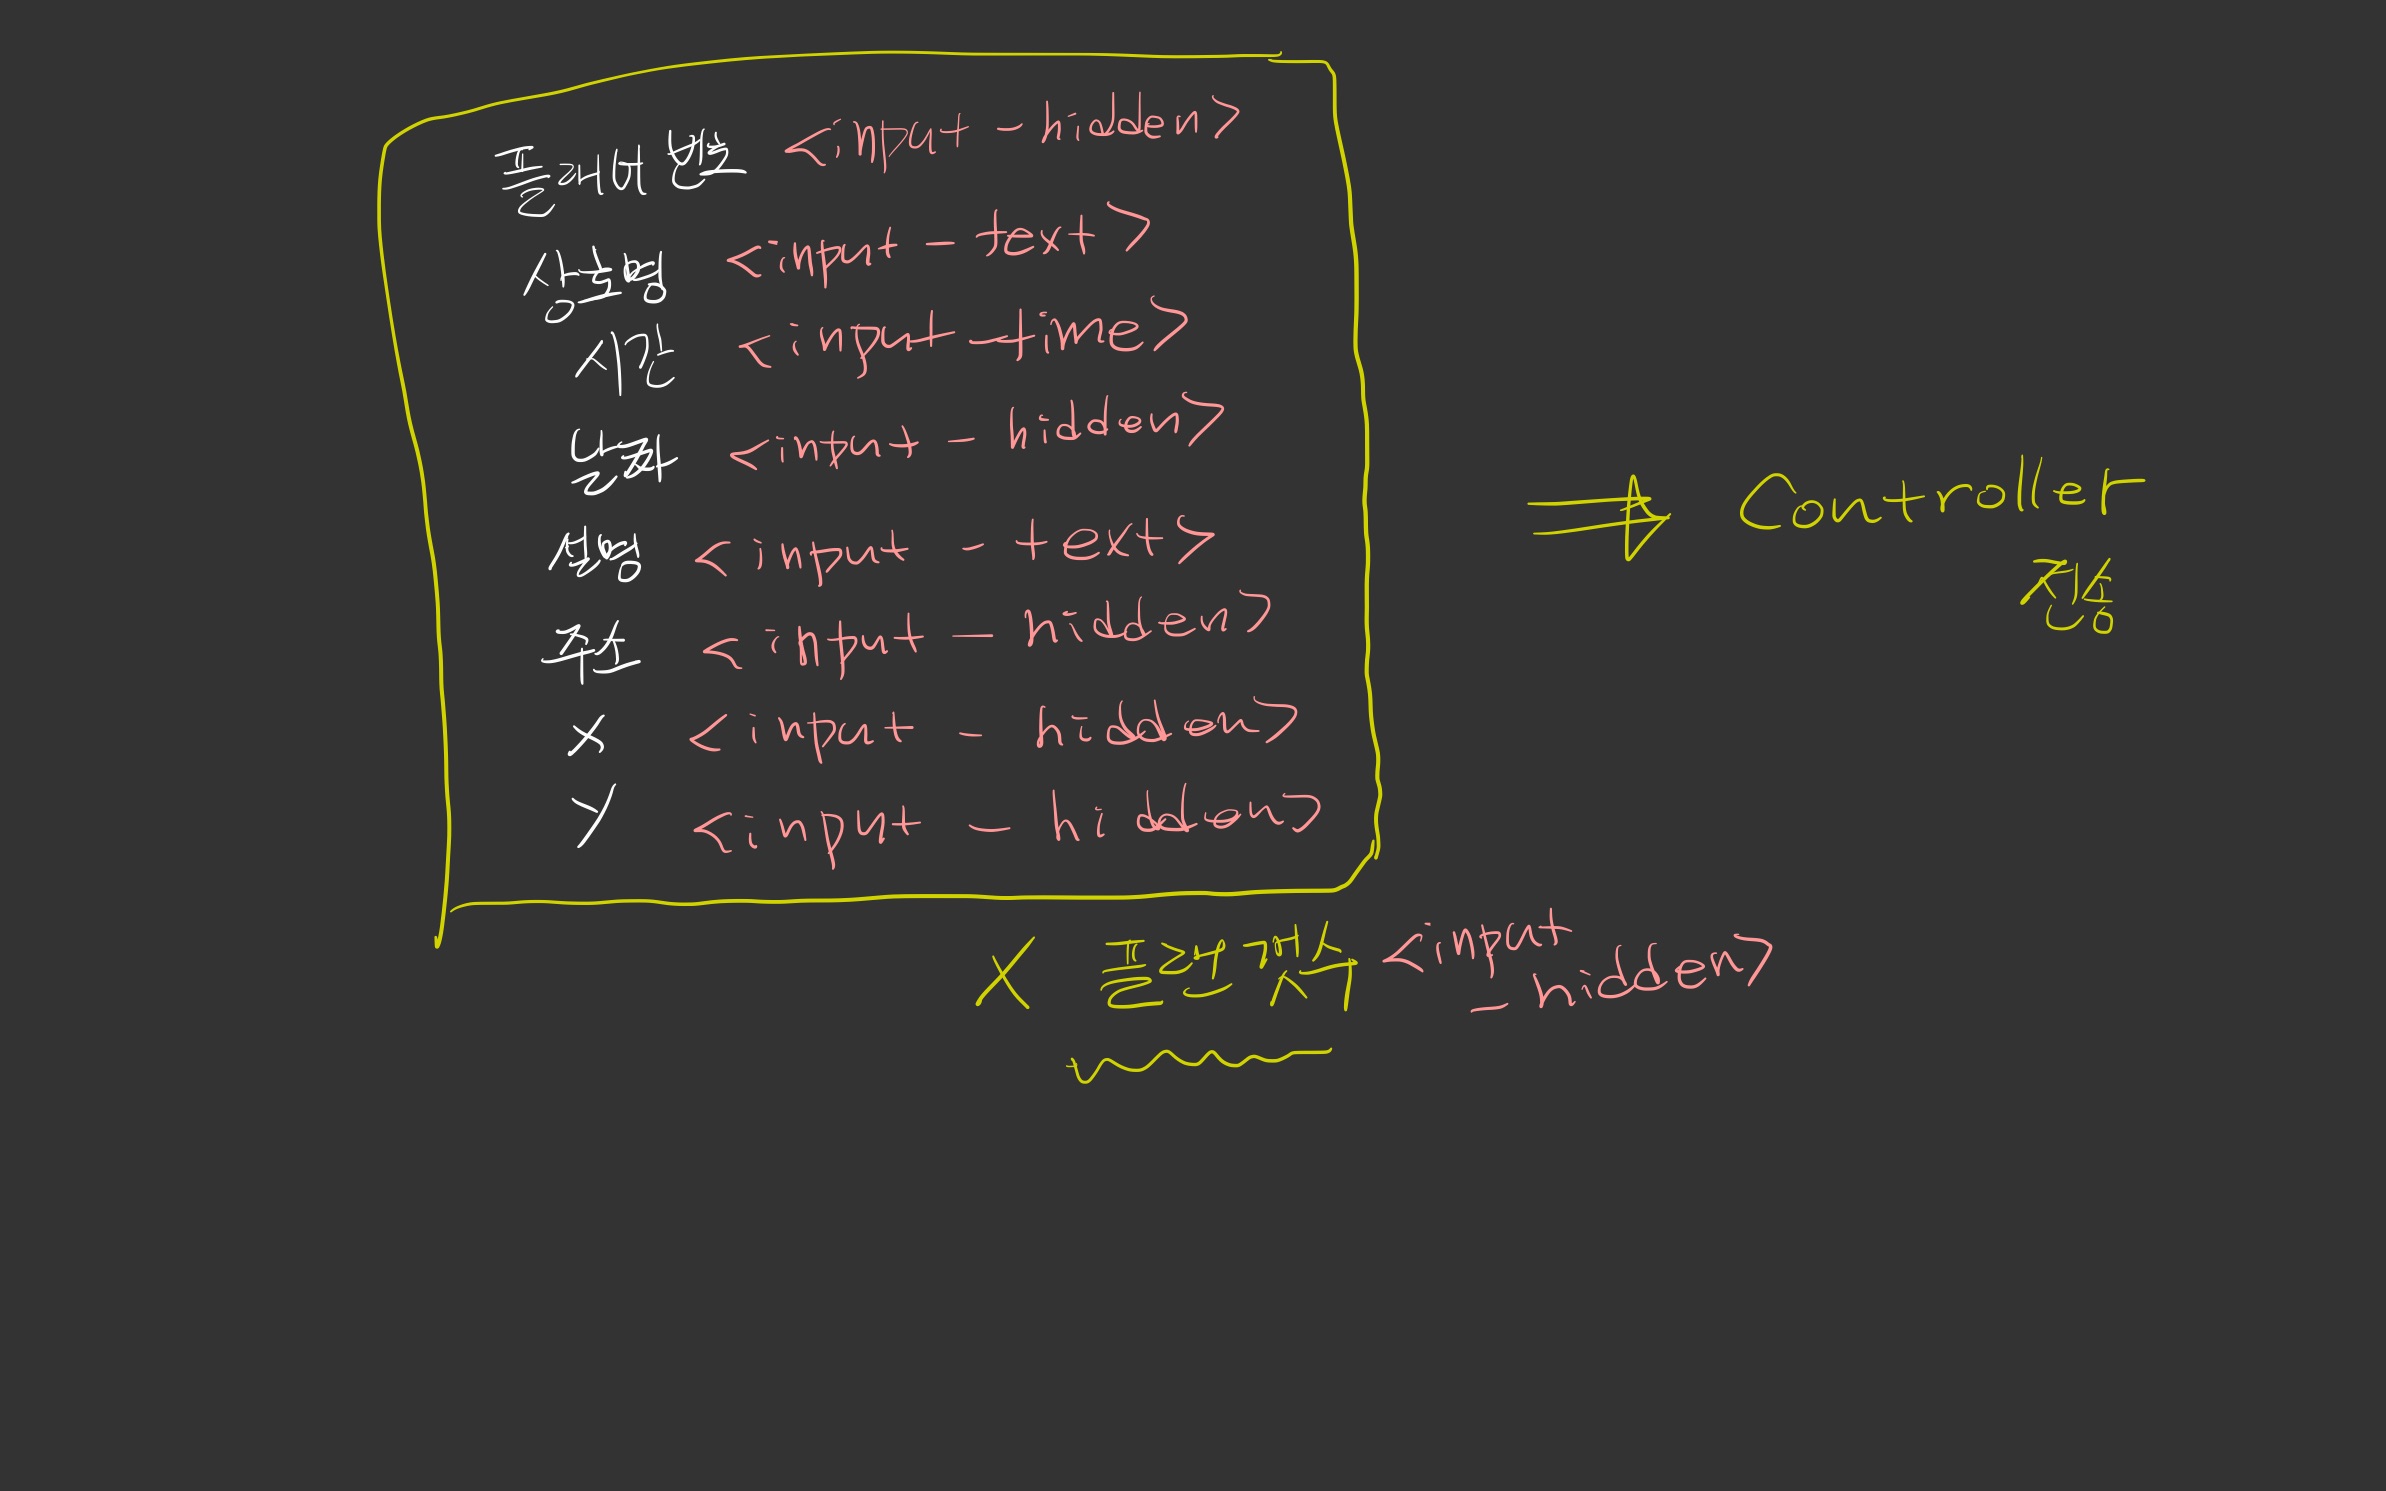 플래너 번호 <input - hidden>
상호명 <input - text>
시간 <input - time>
날짜 <input - hidden>
설명 <input - text>
주소 <input - hidden>
X <input - hidden>
Y <input - hidden>
=> Controller
전송
X 플랜 개수 <input
- hidden>